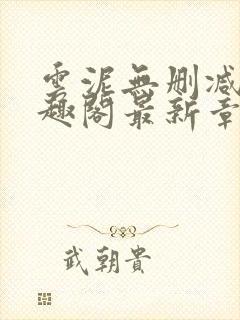 雲泥無刪減
趣閣最新章
武朝貴